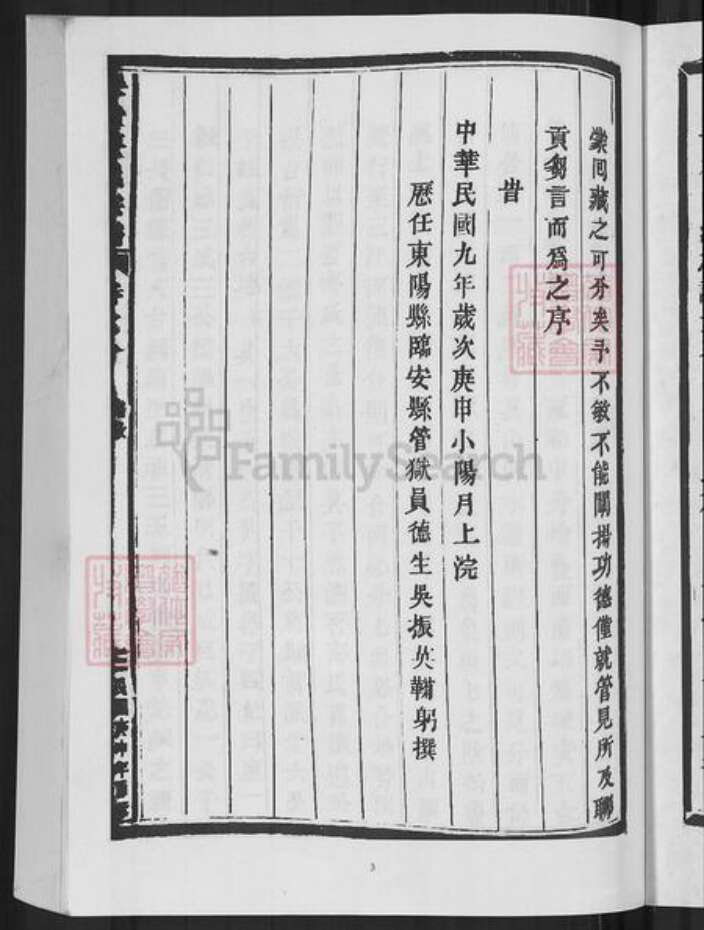 彙同藏之可分矣予不敏不能闡揚功德僅就管見所及聊
貢芻言而為之序
旹
中華民國九年歲次庚申小陽月上浣
歷任東陽縣臨安縣管獄員德生吳振英鞠躬撰
FamilySearch
3